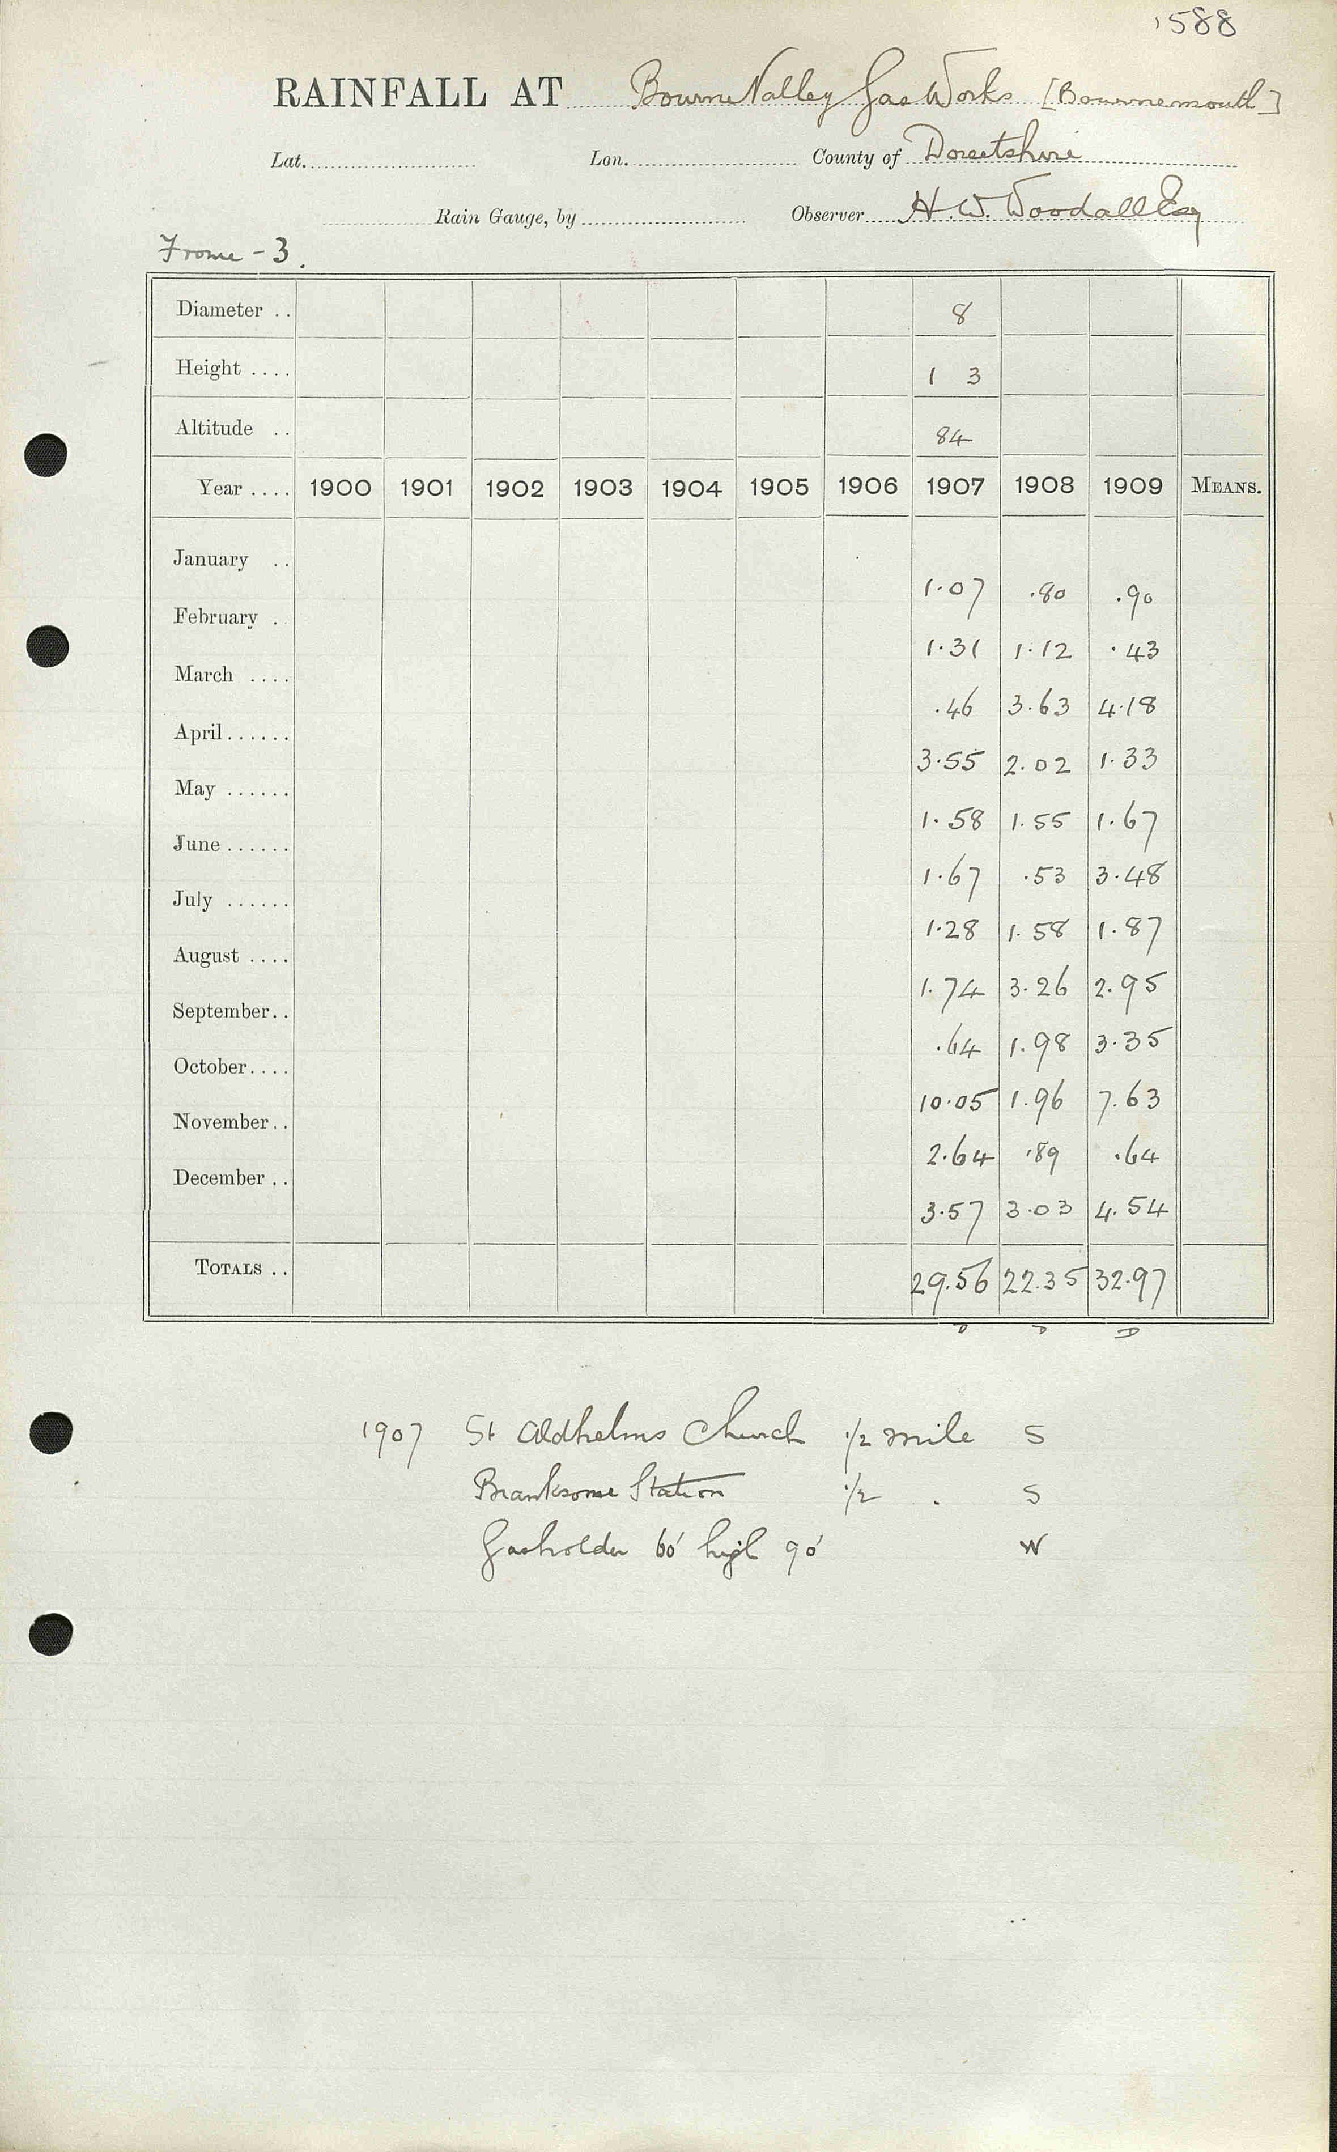 1588
RAINFALL AT Bourne Valley Gas Works [Bournemouth]
Lat. Lon. County of Dorsetshire
Rain Gauge, by Observer H. W. Woodall Esq
Frome - 3.
Diameter .. 8
Height .... 1 3
Altitude .. 84
Year .... 1900 1901 1902 1903 1904 1905 1906 1907 1908 1909 MEANS.
January .. 1.07 .80 .90
February . 1.31 1.12 .43
March .... .46 3.63 4.18
April...... 3.55 2.02 1.33
May ...... 1.58 1.55 1.67
June ...... 1.67 .53 3.48
July ...... 1.28 1.58 1.87
August .... 1.74 3.26 2.95
September.. .64 1.98 3.35
October.... 10.05 1.96 7.63
November.. 2.64 .89 .64
December .. 3.57 3.03 4.54
TOTALS .. 29.56 22.35 32.97
D D D
1907 St Aldhelms Church 1/2 mile S
Branksome Station 1/2 . S
Gasholder 60' high 90' W